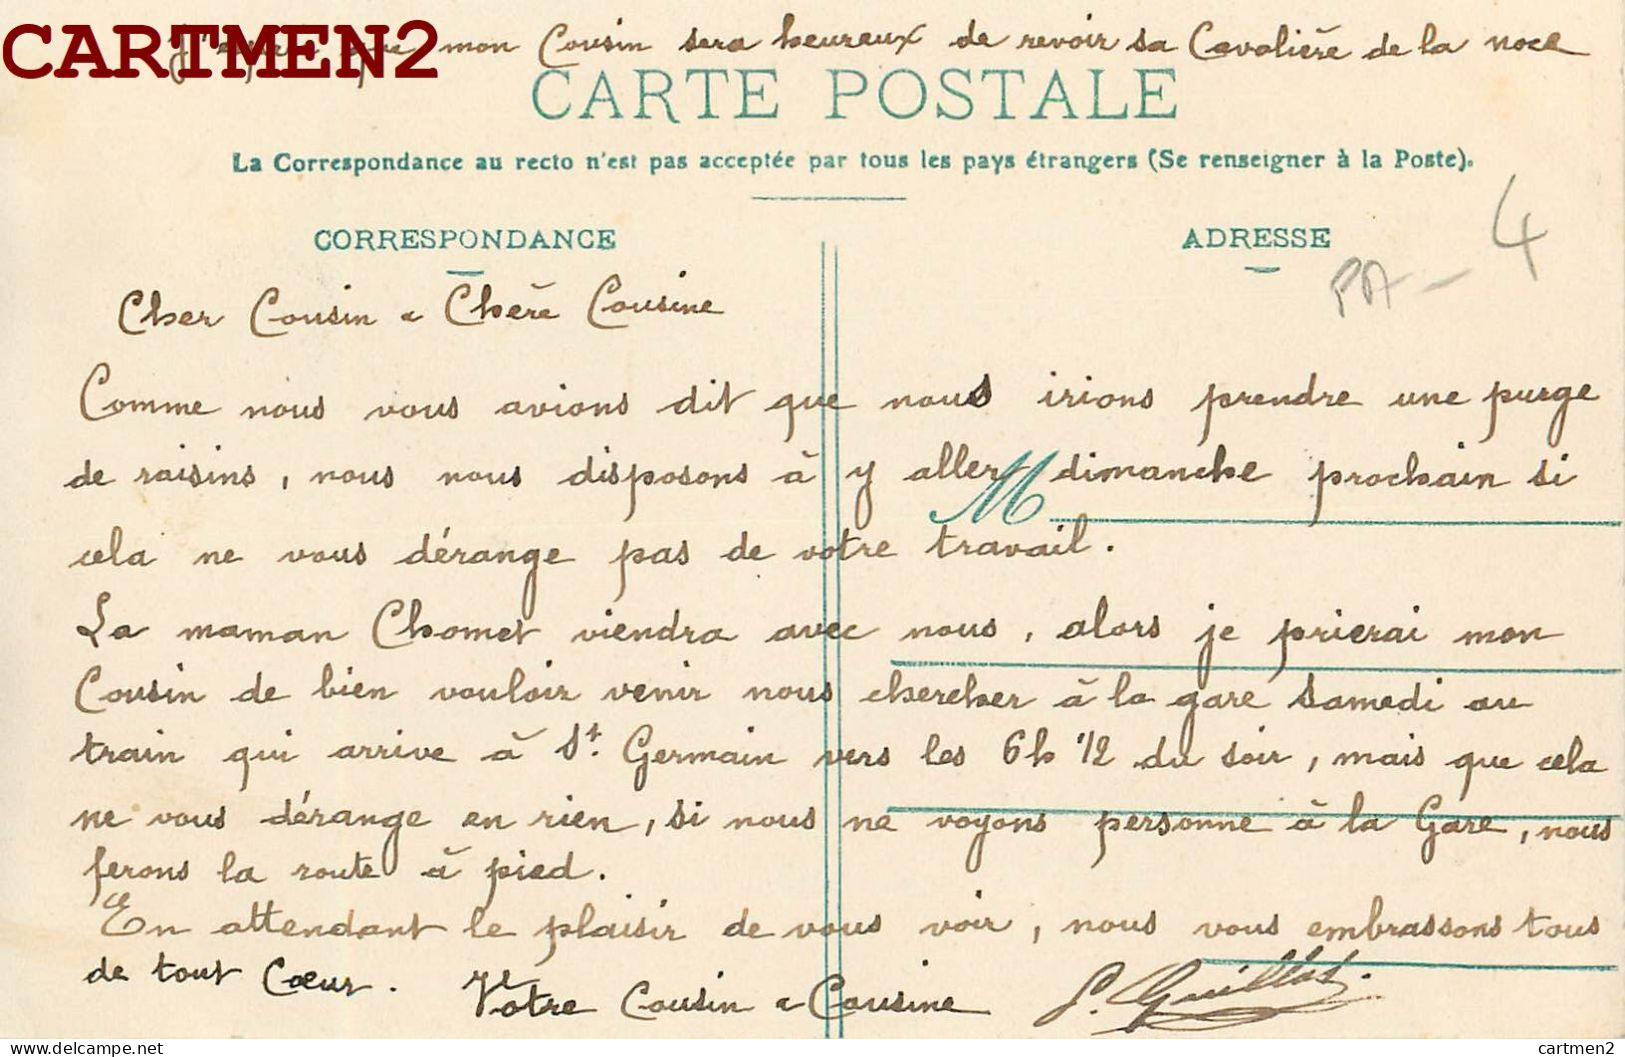 CARTMEN2
que mon Cousin sera heureux de revoir sa Cavalière de la noce
CARTE POSTALE
La Correspondance au recto n'est pas acceptée par tous les pays étrangers (Se renseigner à la Poste).
CORRESPONDANCE
ADRESSE
4
Cher Cousin & Chère Cousine
Comme nous vous avions dit que nous irions prendre une purge
de raisins, nous nous disposons à y aller dimanche prochain si
M
cela ne vous dérange pas de votre travail.
La maman Chomet viendra avec nous, alors je prierai mon
Cousin de bien vouloir venir nous chercher à la gare Samedi au
train qui arrive à St. Germain vers les 6h 1/2 du soir, mais que cela
ne vous dérange en rien, si nous ne voyons personne à la Gare, nous
ferons la route à pied.
En attendant le plaisir de vous voir, nous vous embrassons tous
de tout Cœur.
Votre Cousin & Cousine
Guillot.
delcampe.net
cartmen2